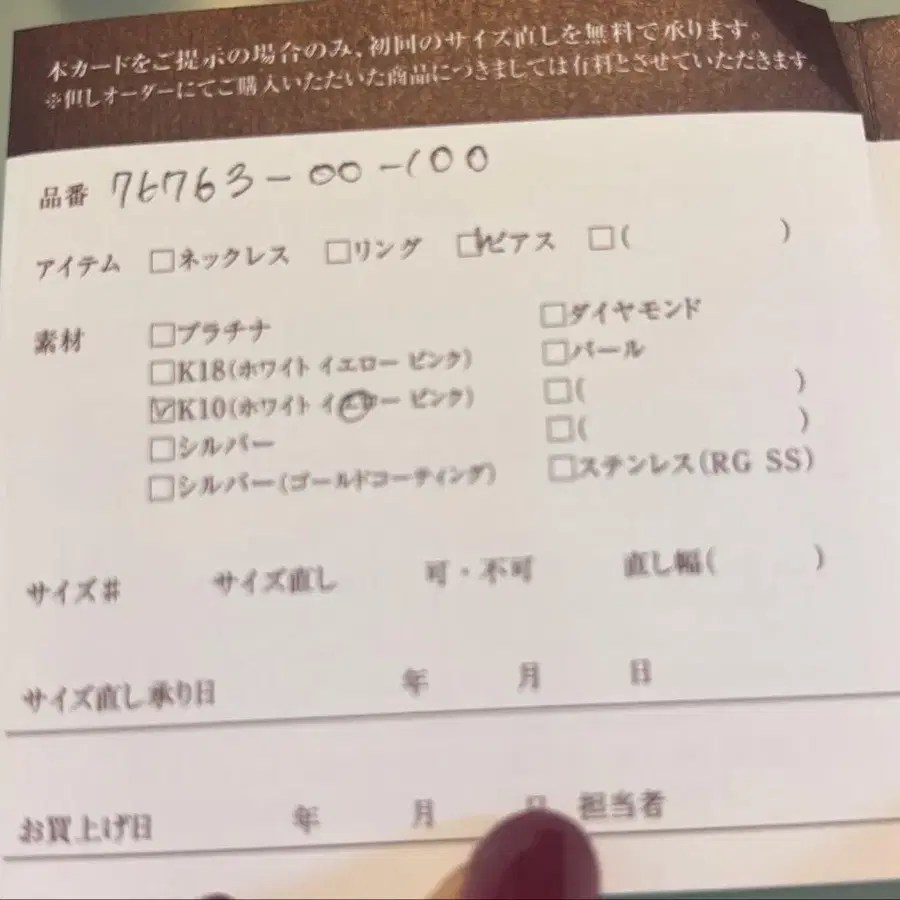 本カードをご提示の場合のみ、初回のサイズ直しを無料で承ります。
※但しオーダーにてご購入いただいた商品につきましては有料とさせていただきます。
品番 76763-00-100
アイテム □ネックレス □リング ☑ピアス □( )
素材 □プラチナ □ダイヤモンド
□K18(ホワイト イエロー ピンク) □パール
☑K10(ホワイト イエロー ピンク) □( )
□シルバー □( )
□シルバー(ゴールドコーティング) □ステンレス(RG SS)
サイズ# サイズ直し 可・不可 直し幅( )
サイズ直し承り日 年 月 日
お買上げ日 年 月 日 担当者